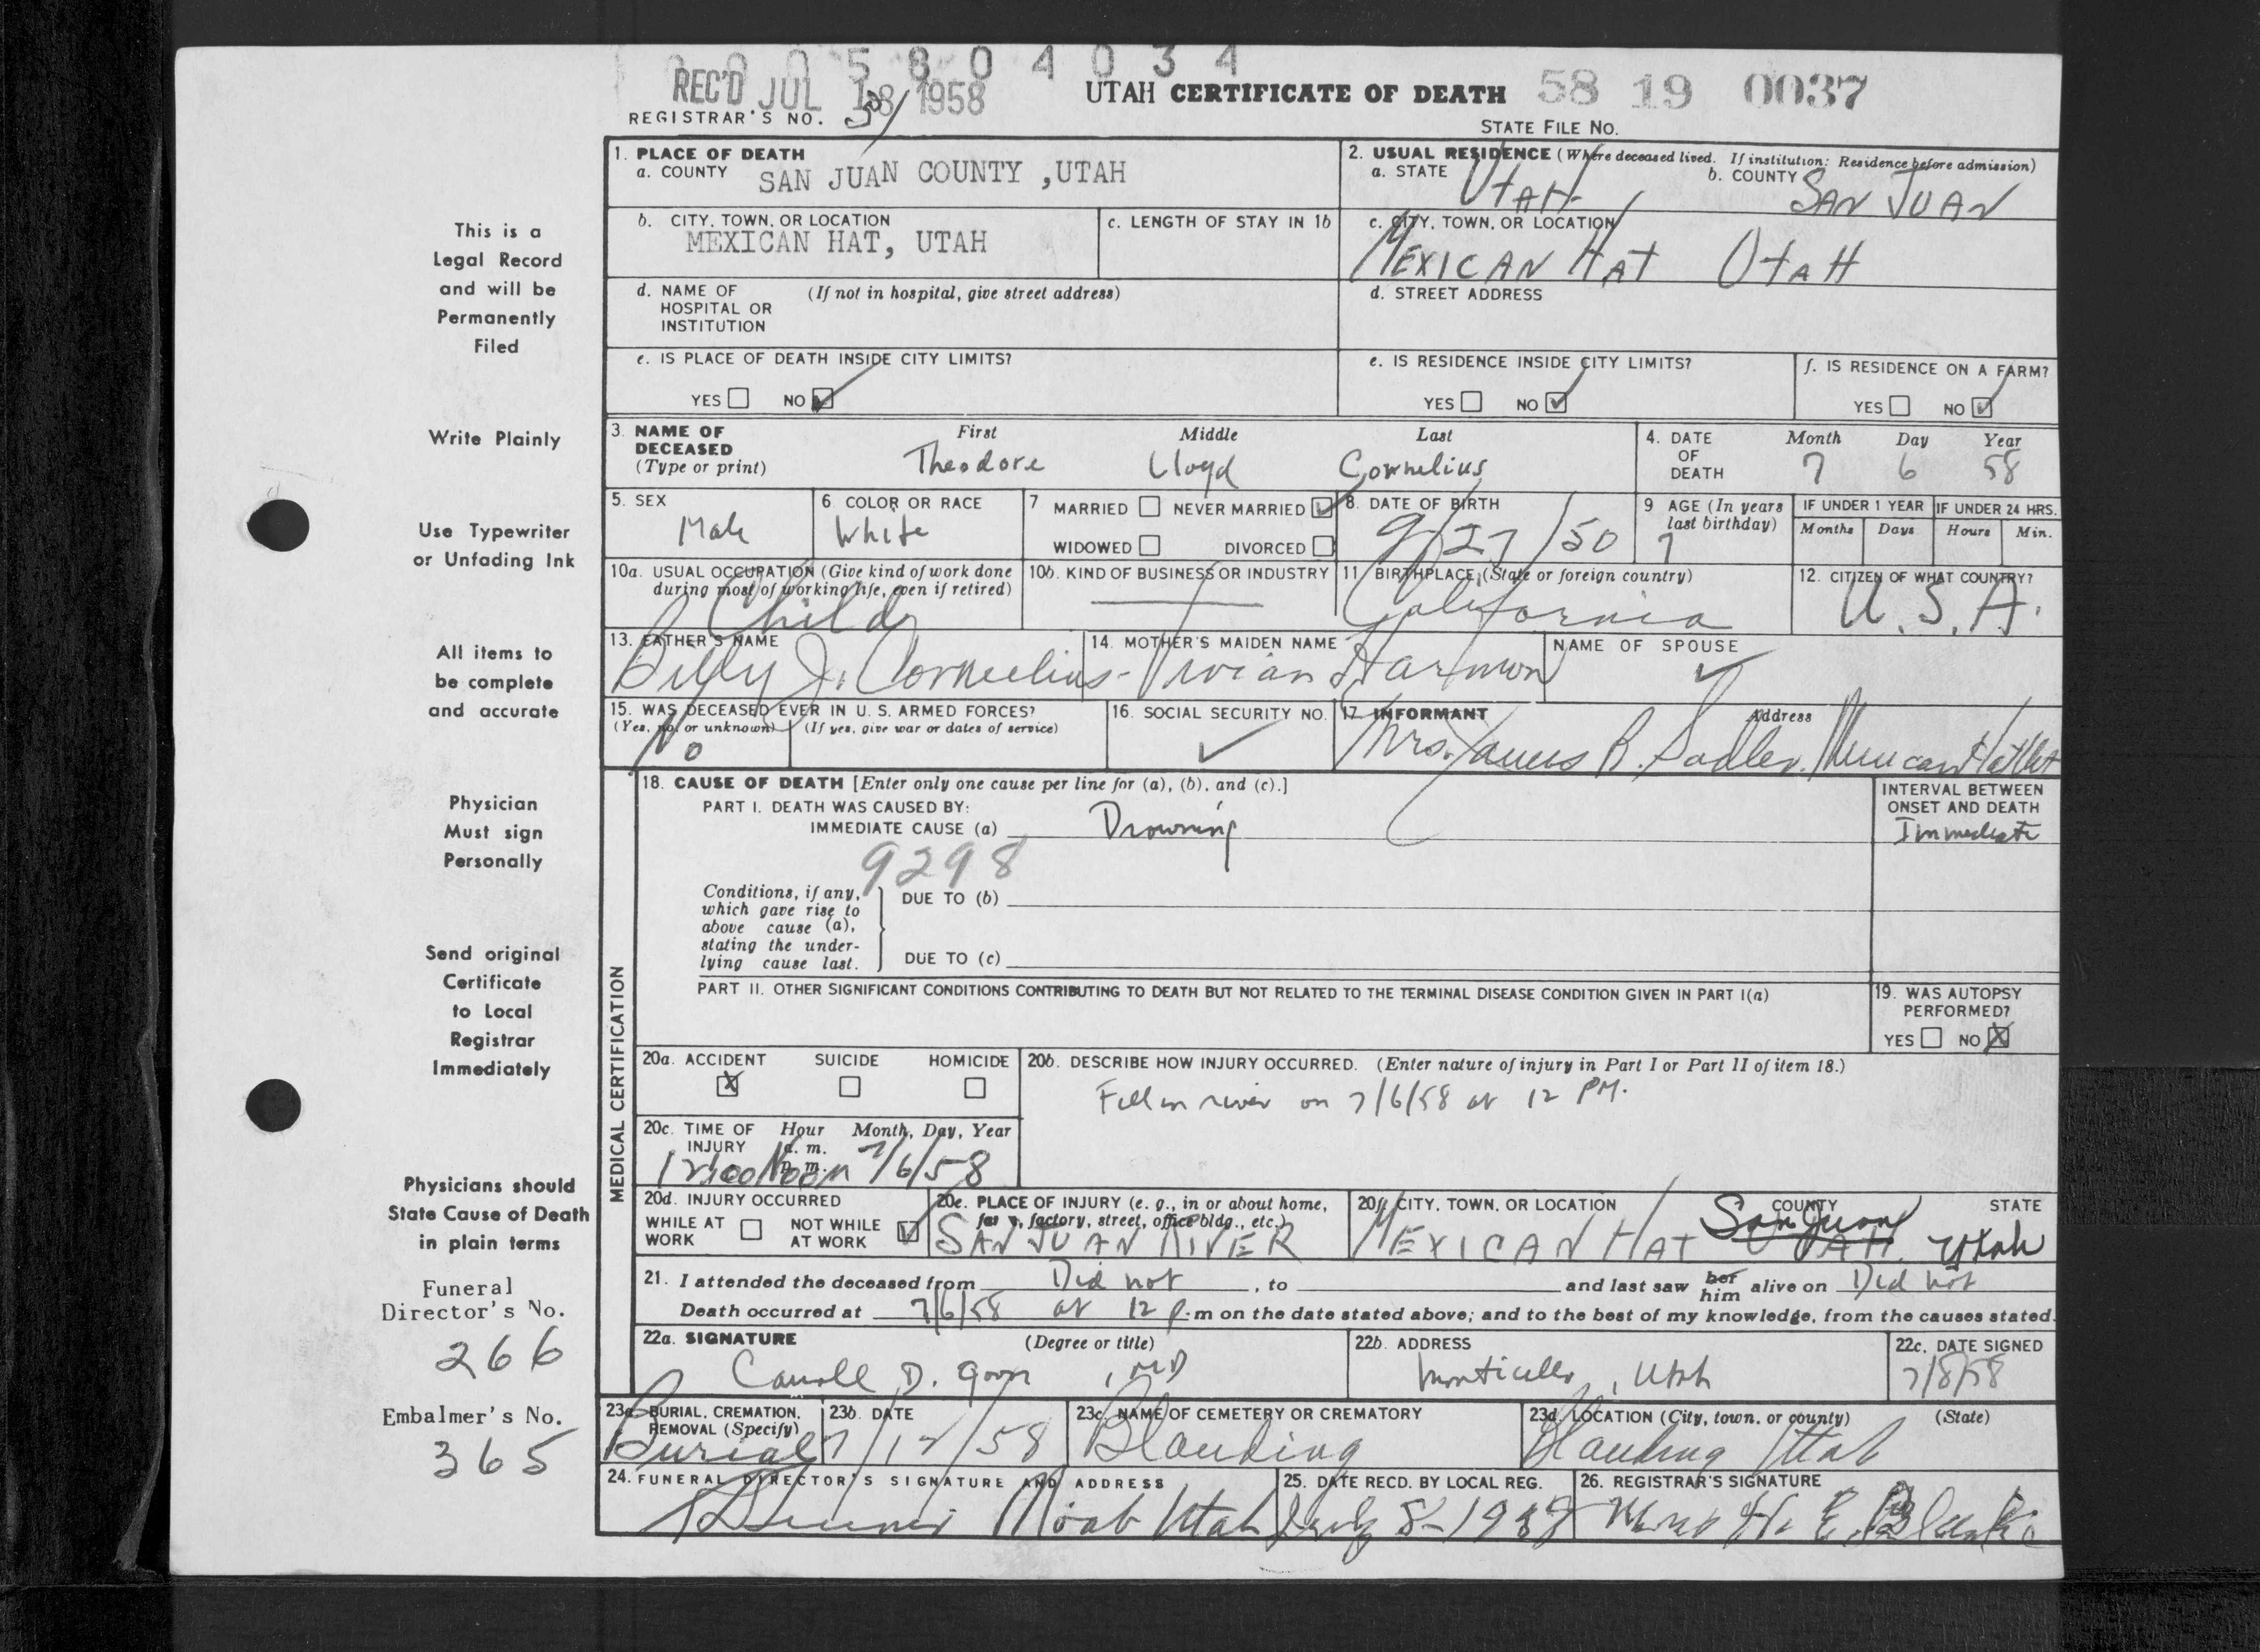 1 0 0 5 8 0 4 0 3 4
REC'D JUL 18 1958
UTAH CERTIFICATE OF DEATH 58 19 0037
REGISTRAR'S NO.
STATE FILE NO.
1. PLACE OF DEATH
a. COUNTY SAN JUAN COUNTY ,UTAH
2. USUAL RESIDENCE (Where deceased lived. If institution: Residence before admission)
a. STATE Utah b. COUNTY SAN JUAN
b. CITY, TOWN, OR LOCATION
MEXICAN HAT, UTAH
c. LENGTH OF STAY IN 1b
c. CITY, TOWN, OR LOCATION
MEXICAN HAT UtaH
d. NAME OF HOSPITAL OR INSTITUTION (If not in hospital, give street address)
d. STREET ADDRESS
e. IS PLACE OF DEATH INSIDE CITY LIMITS?
YES NO
e. IS RESIDENCE INSIDE CITY LIMITS?
YES NO
f. IS RESIDENCE ON A FARM?
YES NO
3. NAME OF DECEASED (Type or print)
First Middle Last
Theodore Lloyd Cornelius
4. DATE OF DEATH
Month Day Year
7 6 58
5. SEX
Male
6. COLOR OR RACE
White
7 MARRIED NEVER MARRIED
WIDOWED DIVORCED
8. DATE OF BIRTH
9/27/50
9 AGE (In years last birthday)
7
IF UNDER 1 YEAR
Months Days
IF UNDER 24 HRS.
Hours Min.
10a. USUAL OCCUPATION (Give kind of work done during most of working life, even if retired)
Child
10b. KIND OF BUSINESS OR INDUSTRY
11 BIRTHPLACE (State or foreign country)
California
12. CITIZEN OF WHAT COUNTRY?
U.S.A.
13. FATHER'S NAME
Billy J. Cornelius
14. MOTHER'S MAIDEN NAME
Vivian Harmon
NAME OF SPOUSE
15. WAS DECEASED EVER IN U. S. ARMED FORCES?
(Yes, no, or unknown) (If yes, give war or dates of service)
No
16. SOCIAL SECURITY NO.
17. INFORMANT Address
Mrs. James R. Sadler.
18. CAUSE OF DEATH [Enter only one cause per line for (a), (b), and (c).]
PART I. DEATH WAS CAUSED BY:
IMMEDIATE CAUSE (a) Drowning
INTERVAL BETWEEN ONSET AND DEATH
Immediate
9298
Conditions, if any, which gave rise to above cause (a), stating the underlying cause last.
DUE TO (b)
DUE TO (c)
PART II. OTHER SIGNIFICANT CONDITIONS CONTRIBUTING TO DEATH BUT NOT RELATED TO THE TERMINAL DISEASE CONDITION GIVEN IN PART I(a)
19. WAS AUTOPSY PERFORMED?
YES NO
MEDICAL CERTIFICATION
20a. ACCIDENT SUICIDE HOMICIDE
20b. DESCRIBE HOW INJURY OCCURRED. (Enter nature of injury in Part I or Part II of item 18.)
Fell in river on 7/6/58 at 12 PM.
20c. TIME OF INJURY Hour a. m. p. m. Month, Day, Year
12:00 Noon 7/6/58
20d. INJURY OCCURRED
WHILE AT WORK NOT WHILE AT WORK
20e. PLACE OF INJURY (e. g., in or about home, farm, factory, street, office bldg., etc.)
SAN JUAN RIVER
20f. CITY, TOWN, OR LOCATION COUNTY STATE
MEXICAN HAT UTAH San Juan Utah
21. I attended the deceased from Did not, to and last saw her him alive on Did not
Death occurred at 7/6/58 at 12 p.m on the date stated above; and to the best of my knowledge, from the causes stated.
22a. SIGNATURE (Degree or title)
Carroll D. Goon, MD
22b. ADDRESS
Monticello, Utah
22c. DATE SIGNED
7/8/58
23a. BURIAL, CREMATION, REMOVAL (Specify)
Burial
23b. DATE
7/12/58
23c. NAME OF CEMETERY OR CREMATORY
Blanding
23d. LOCATION (City, town, or county) (State)
Blanding Utah
24. FUNERAL DIRECTOR'S SIGNATURE AND ADDRESS
Moab Utah
25. DATE RECD. BY LOCAL REG.
July 8-1958
26. REGISTRAR'S SIGNATURE
This is a
Legal Record
and will be
Permanently
Filed
Write Plainly
Use Typewriter
or Unfading Ink
All items to
be complete
and accurate
Physician
Must sign
Personally
Send original
Certificate
to Local
Registrar
Immediately
Physicians should
State Cause of Death
in plain terms
Funeral
Director's No.
266
Embalmer's No.
365